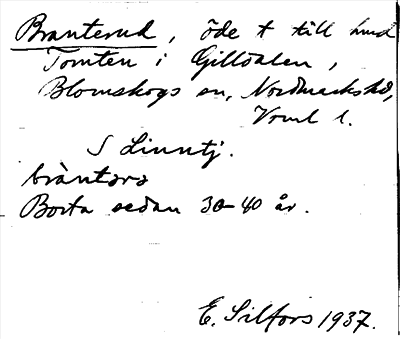 Branterud, öde t till hmd
Tomten i Gilldalen,
Blomskogs sn, Nordmarks hd,
Vrml l.
S Linntj.
bràntərə
Borta sedan 30-40 år.
E. Silfors 1937.